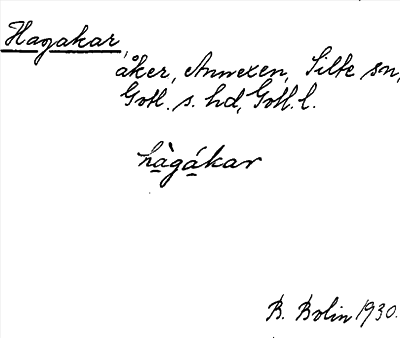 Hagakar,
åker, Annexen, Silte sn,
Gotl. s. hd, Gotl. l.
hàgákar
B. Bolin 1930.